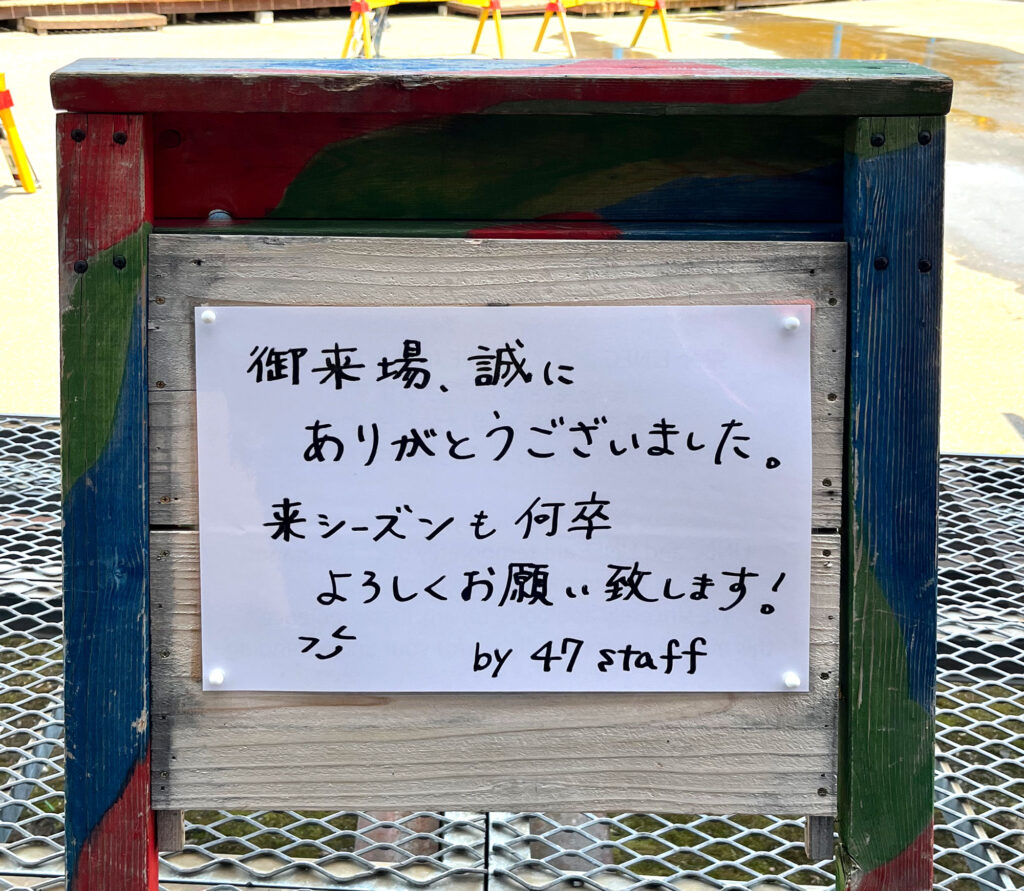 御来場、誠に
ありがとうございました。
来シーズンも何卒
よろしくお願い致します!
by 47 staff